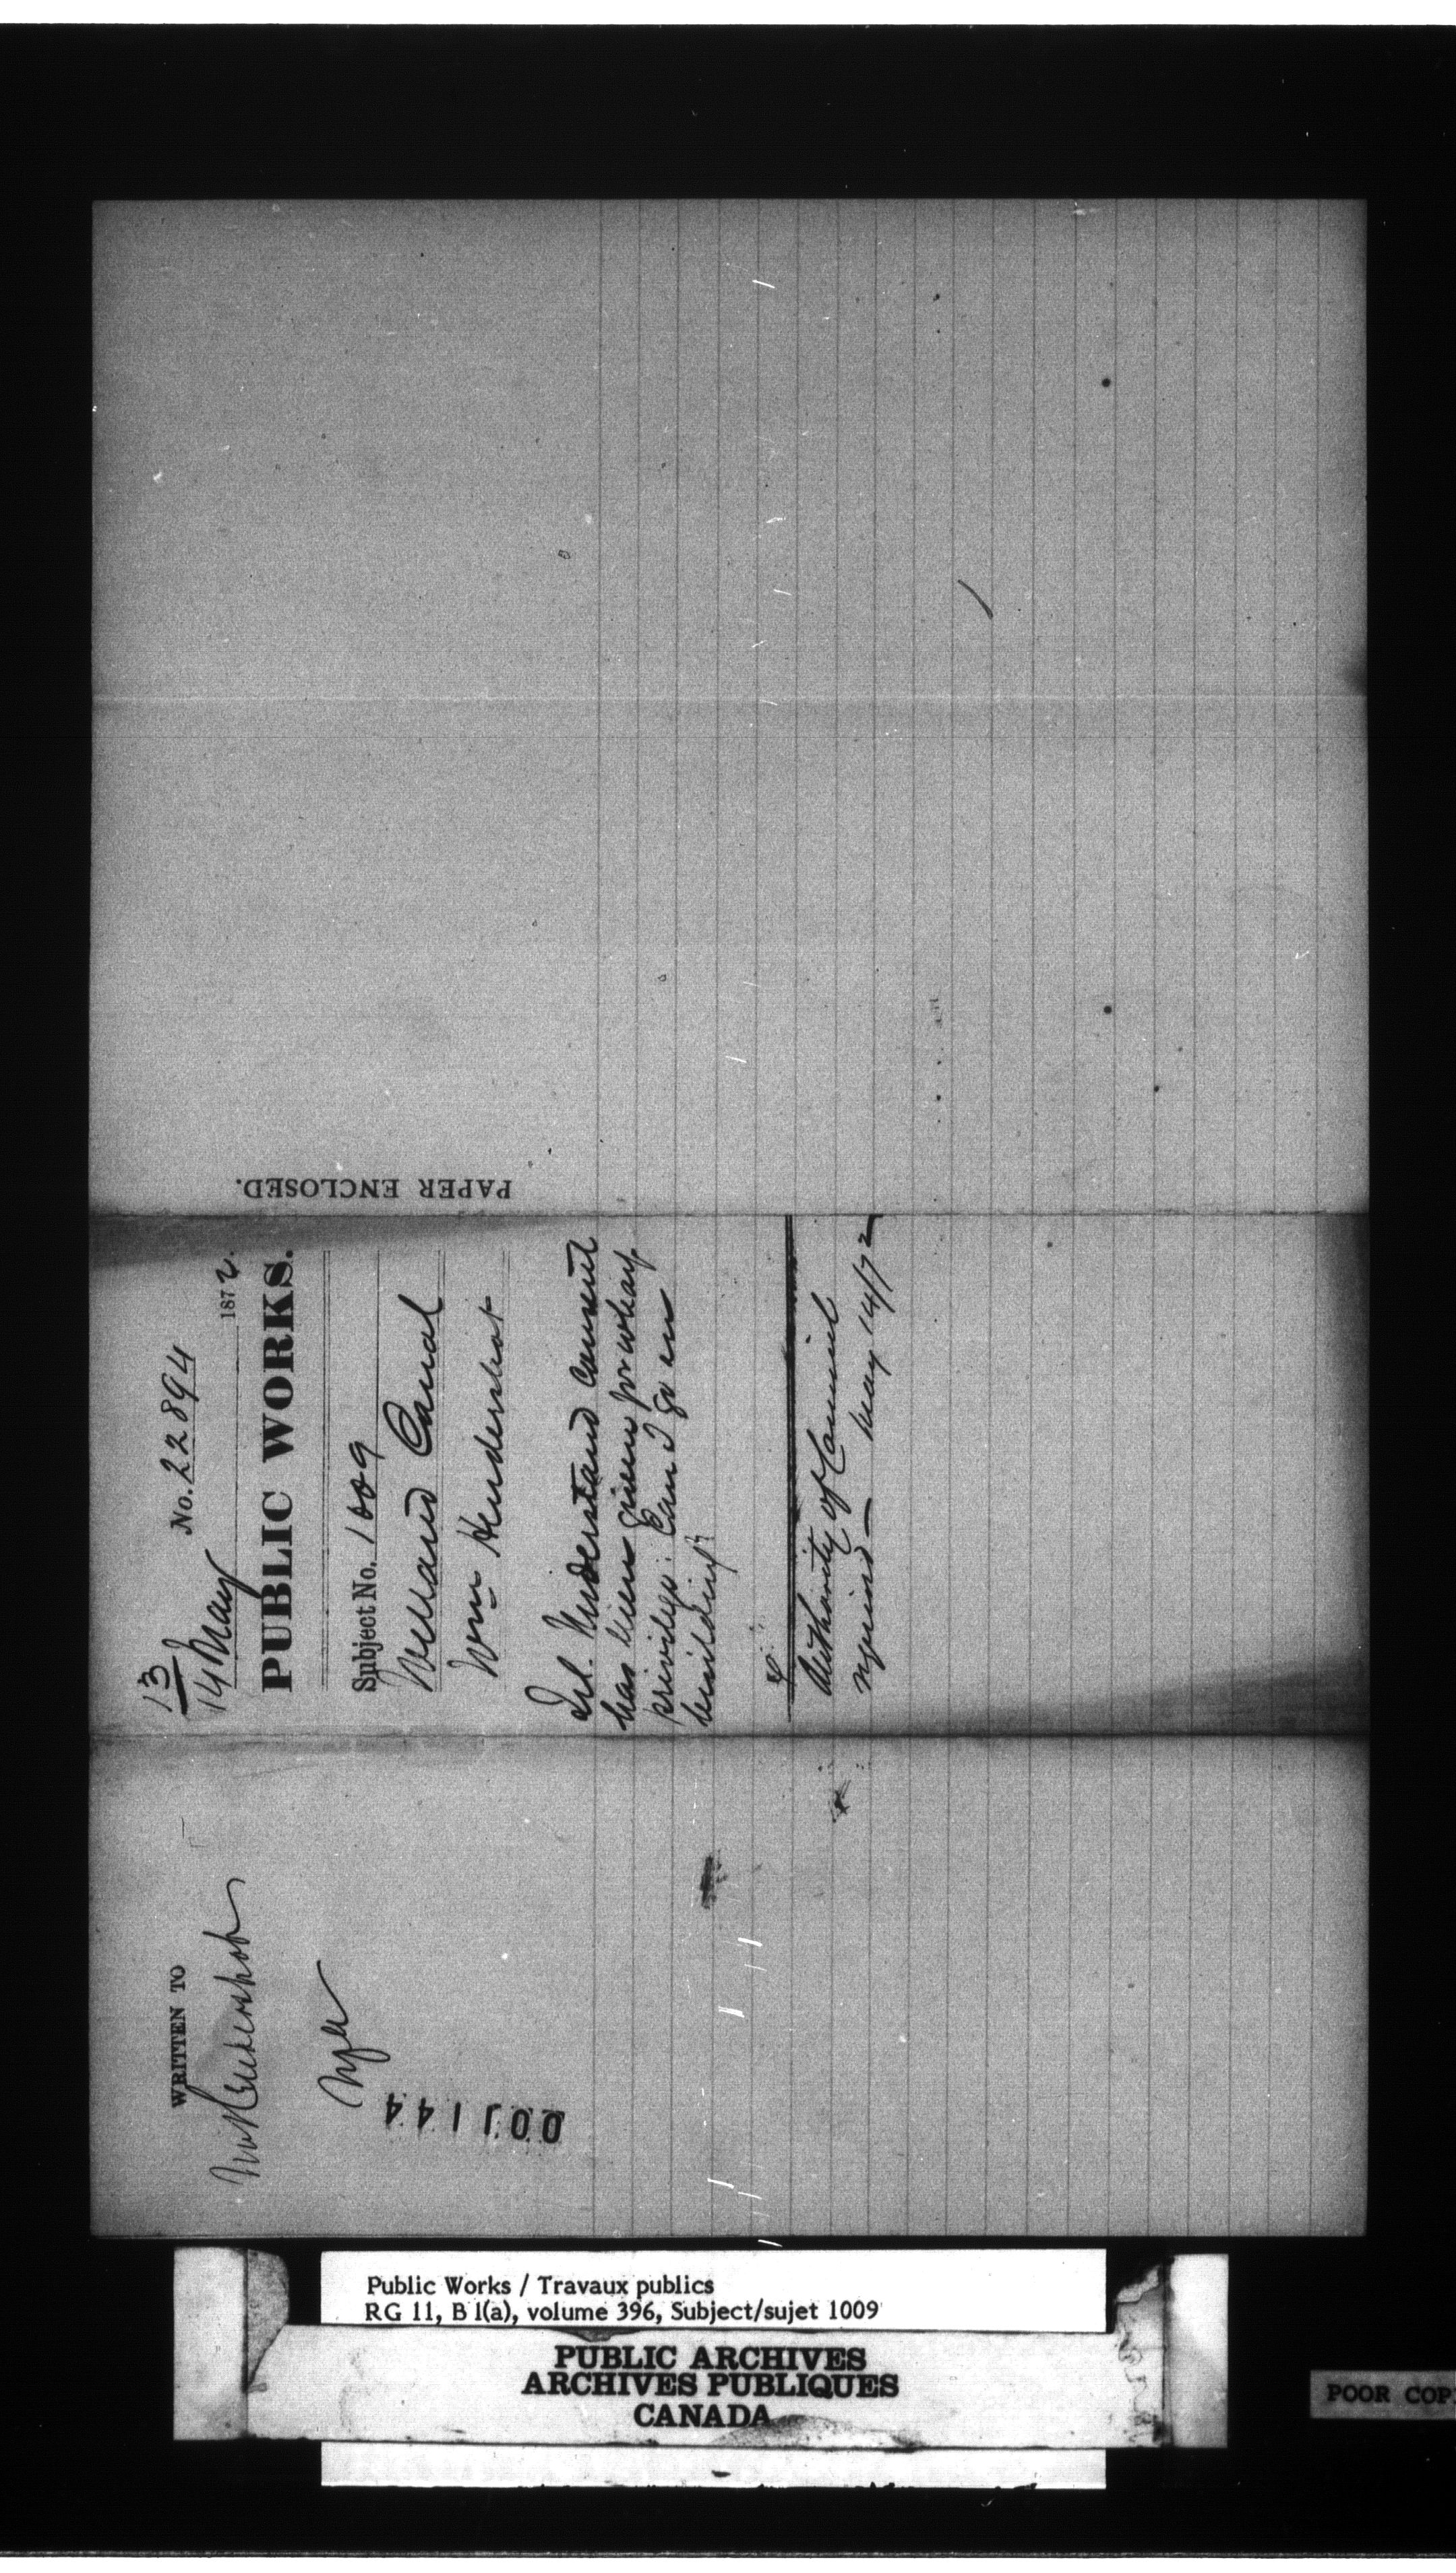 No. 22894
13
14 May 1872.
PUBLIC WORKS.
Subject No. 1009
Welland Canal
Wm Hendershot
Tel. Understand consent
has been given for whay
privilege. Can I go on
building?
Authority of Council
required — May 14/72
PAPER ENCLOSED.
WRITTEN TO
Wm Hendershot
001144
Public Works / Travaux publics
RG 11, B 1(a), volume 396, Subject/sujet 1009
PUBLIC ARCHIVES
ARCHIVES PUBLIQUES
CANADA
POOR COP